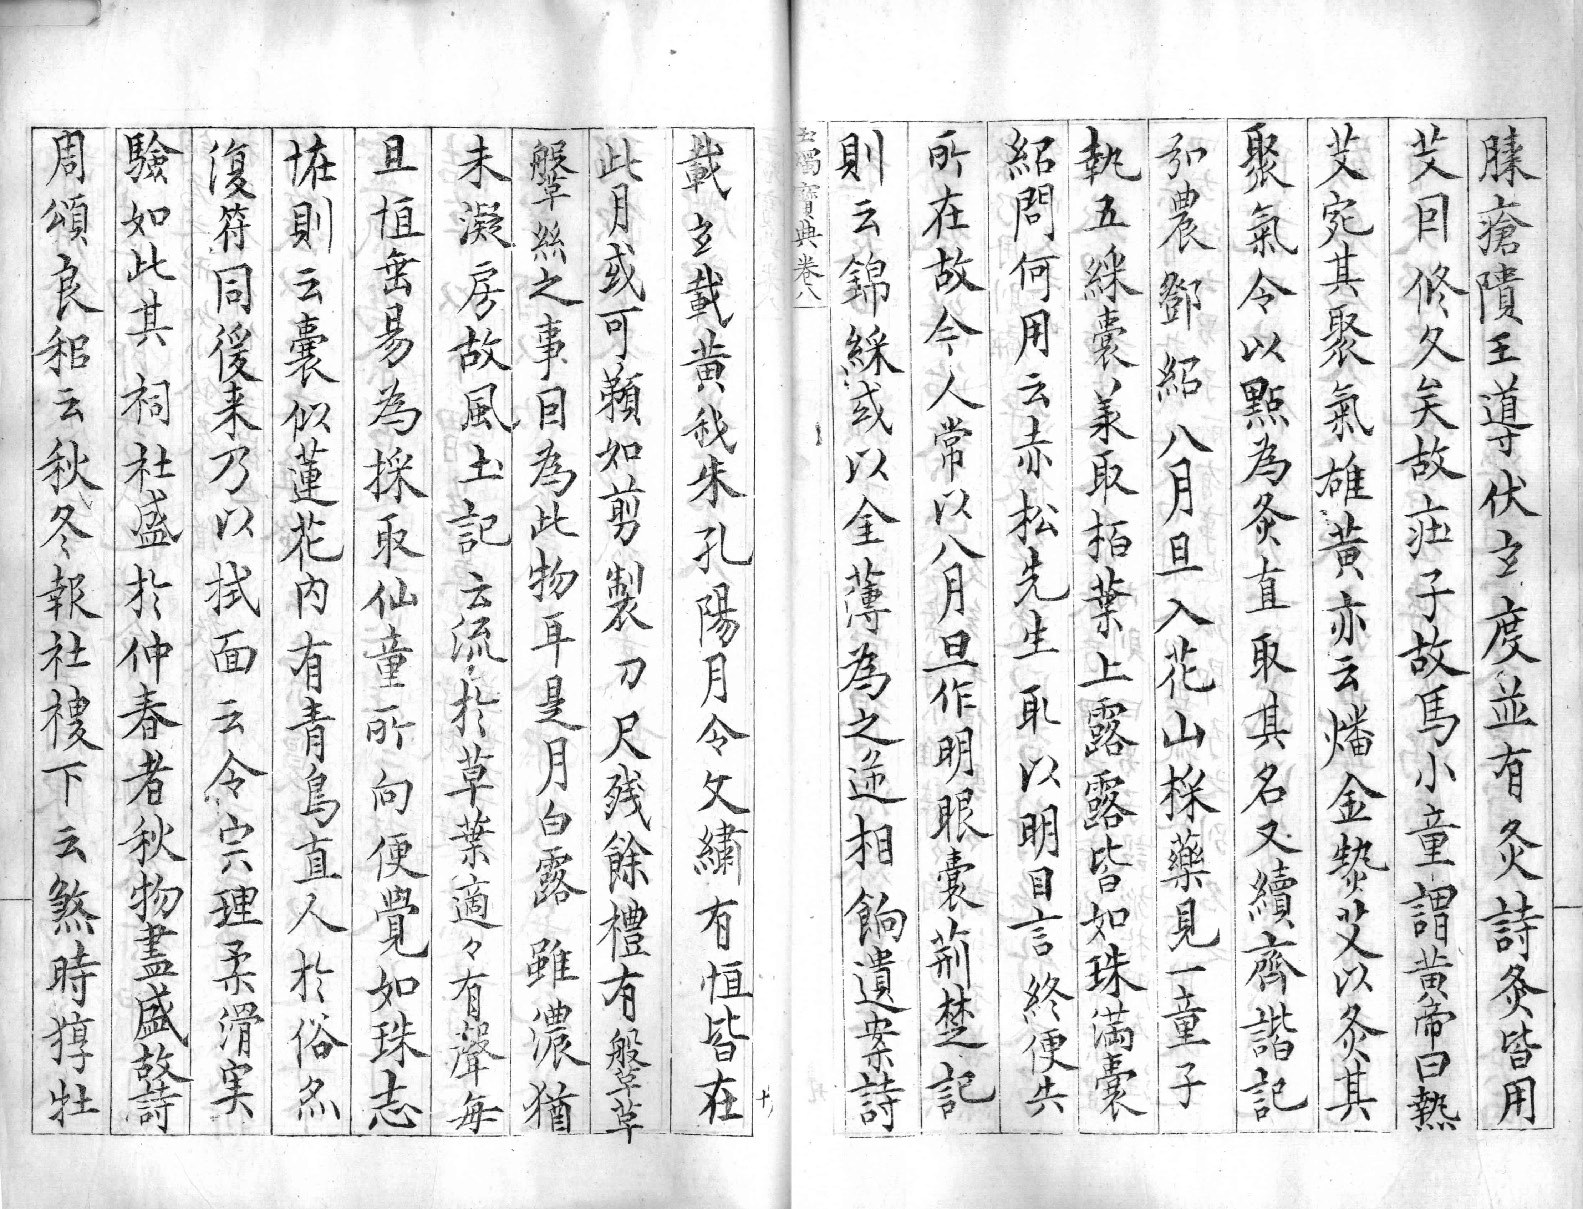 膝瘡隤王導伏玄度並有灸詩灸皆用
艾因修久矣故疰子故馬小童謂黄帝曰熱
艾宛其聚氣雄黄亦云燔金𤍠艾以灸其
聚氣令以點為灸直取其名又續齊諧記
弘農鄧紹八月旦入花山採藥見一童子
執五綵囊羕取栢葉上露露皆如珠満囊
紹問何用云赤松先生取以明目言終便失
所在故今人常以八月旦作明眼囊荊楚記
則云錦綵或以金薄為之逆相餉遺案詩
玉燭寳典卷八
載玄載黄我朱孔陽月令文繡有恒皆在
此月或可頼如剪製刀尺残餘禮有鞶革
鞶絲之事因為此物耳是月白露雖濃猶
未凝房故風土記云流於草葉適々有聲毎
旦恒垂易為採取仙童所向便覺如珠志
恠則云囊似蓮花内有青鳥直人於俗為
復符同後来乃以拭面云令宍理柔滑実
驗如此其祠社盛於仲春者秋物盡盛故詩
周頌良耜云秋冬報社禝下云煞時犉牡